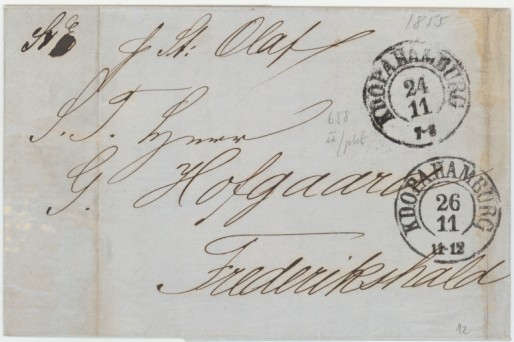 1855
p St: Olaf
KDOPAHAMBURG
24
11
7-8
S. T. Herr
688
G. Hofgaard
KDOPAHAMBURG
26
11
11-12
Frederikshald
12